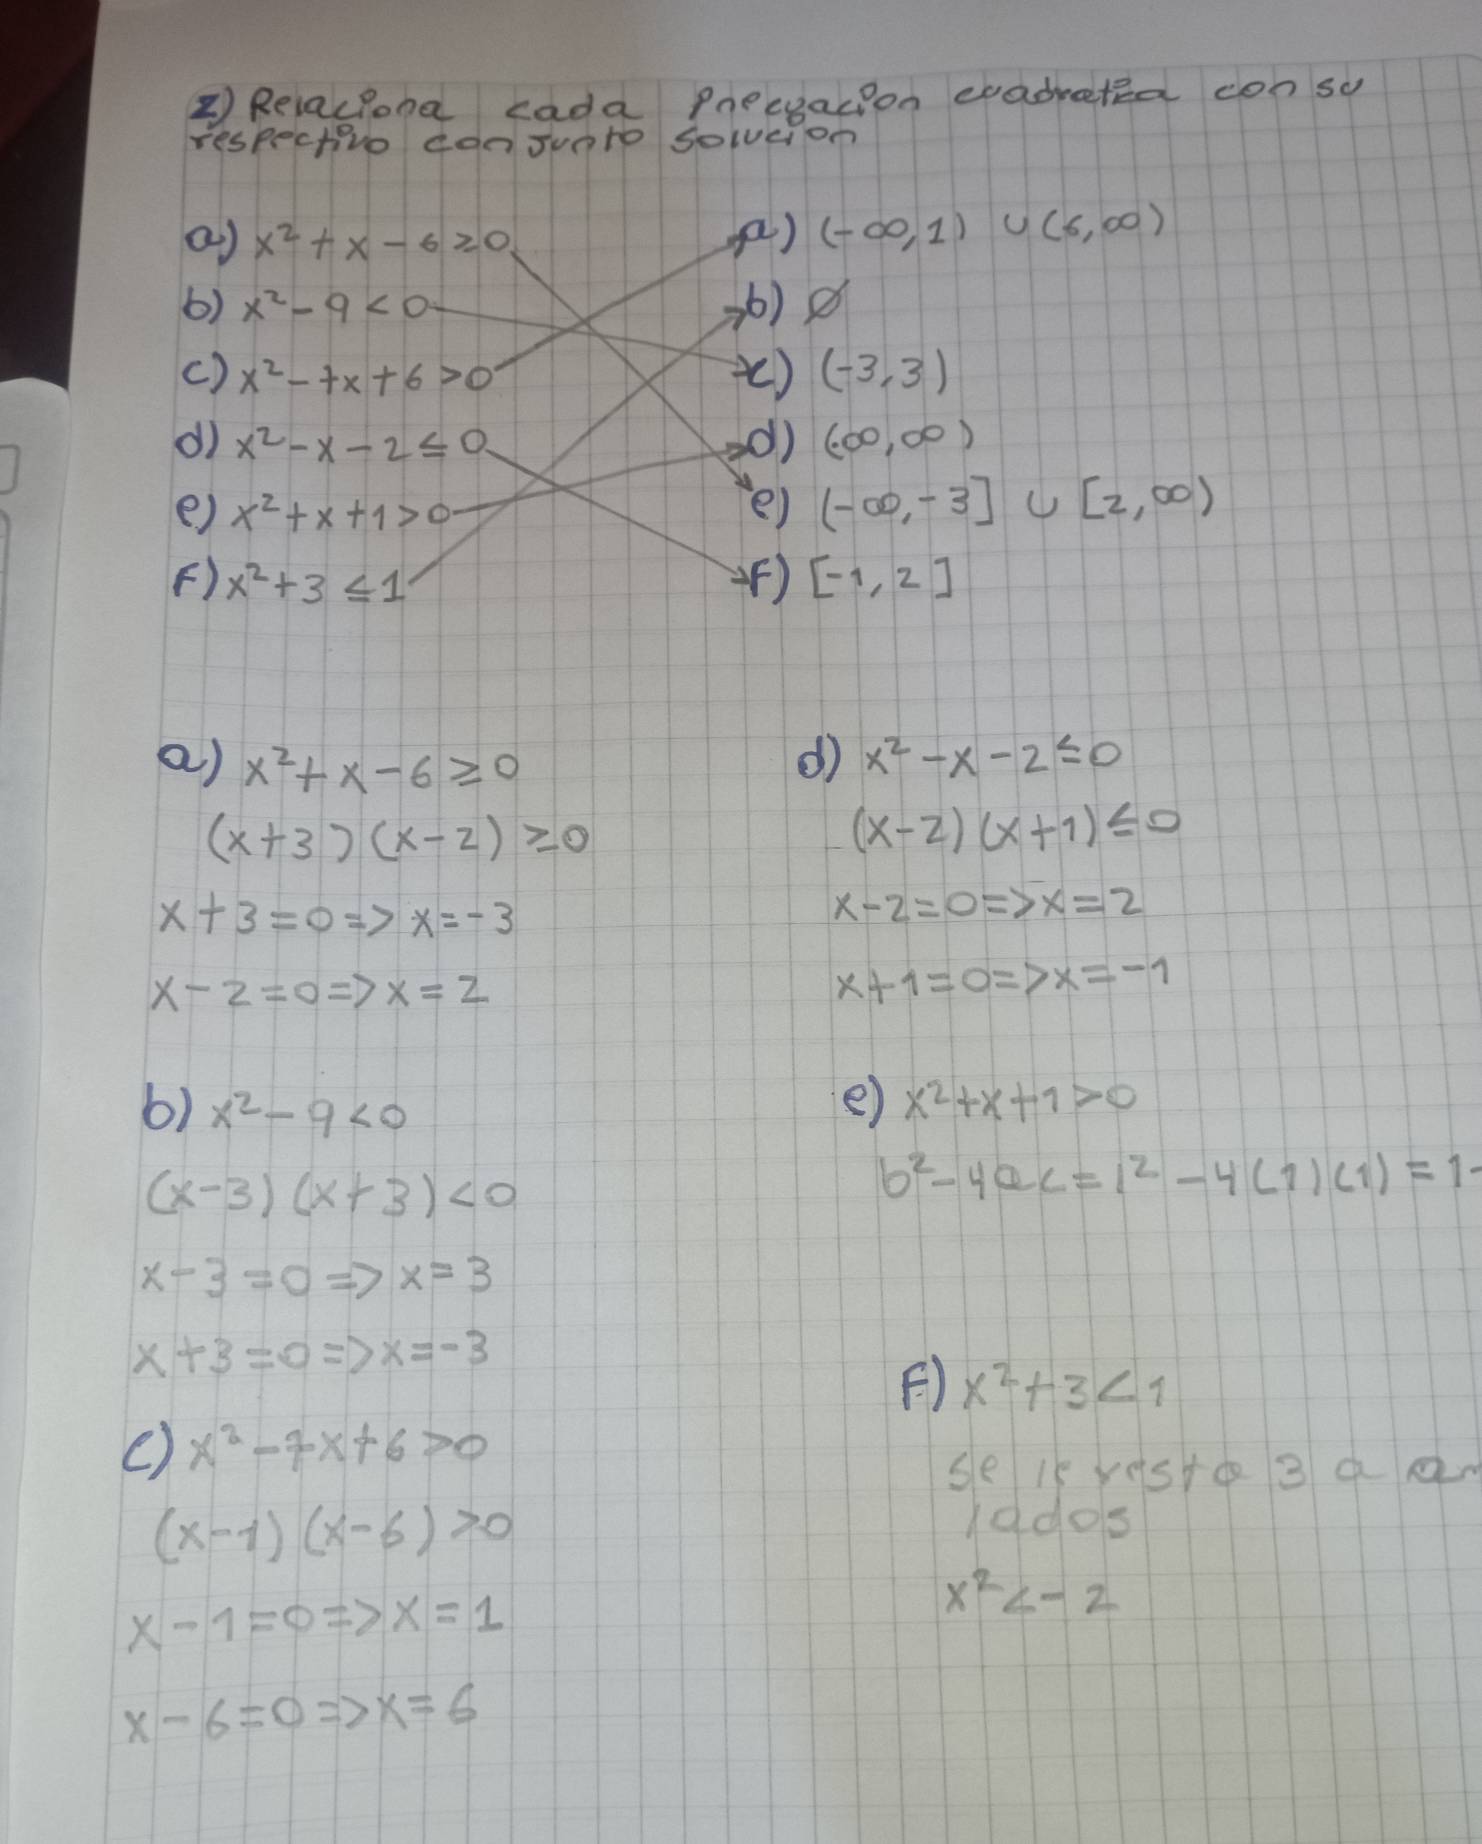 2) Relaciona cada inecuacion cuadratica con su
respectivo conjunto solucion
a) x² + x - 6 ≥ 0
b) x² - 9 < 0
c) x² - 7x + 6 > 0
d) x² - x - 2 ≤ 0
e) x² + x + 1 > 0
F) x² + 3 ≤ 1
a) (-∞, 1) ∪ (6, ∞)
b) ∅
c) (-3, 3)
d) (-∞, ∞)
e) (-∞, -3] ∪ [2, ∞)
F) [-1, 2]
a) x² + x - 6 ≥ 0
(x + 3) (x - 2) ≥ 0
x + 3 = 0 => x = -3
x - 2 = 0 => x = 2
b) x² - 9 < 0
(x - 3) (x + 3) < 0
x - 3 = 0 => x = 3
x + 3 = 0 => x = -3
c) x² - 7x + 6 > 0
(x - 1) (x - 6) > 0
x - 1 = 0 => x = 1
x - 6 = 0 => x = 6
d) x² - x - 2 ≤ 0
(x - 2) (x + 1) ≤ 0
x - 2 = 0 => x = 2
x + 1 = 0 => x = -1
e) x² + x + 1 > 0
b² - 4ac = 1² - 4(1)(1) = 1-
F) x² + 3 < 1
se le resta 3 a
lados
x² < -2